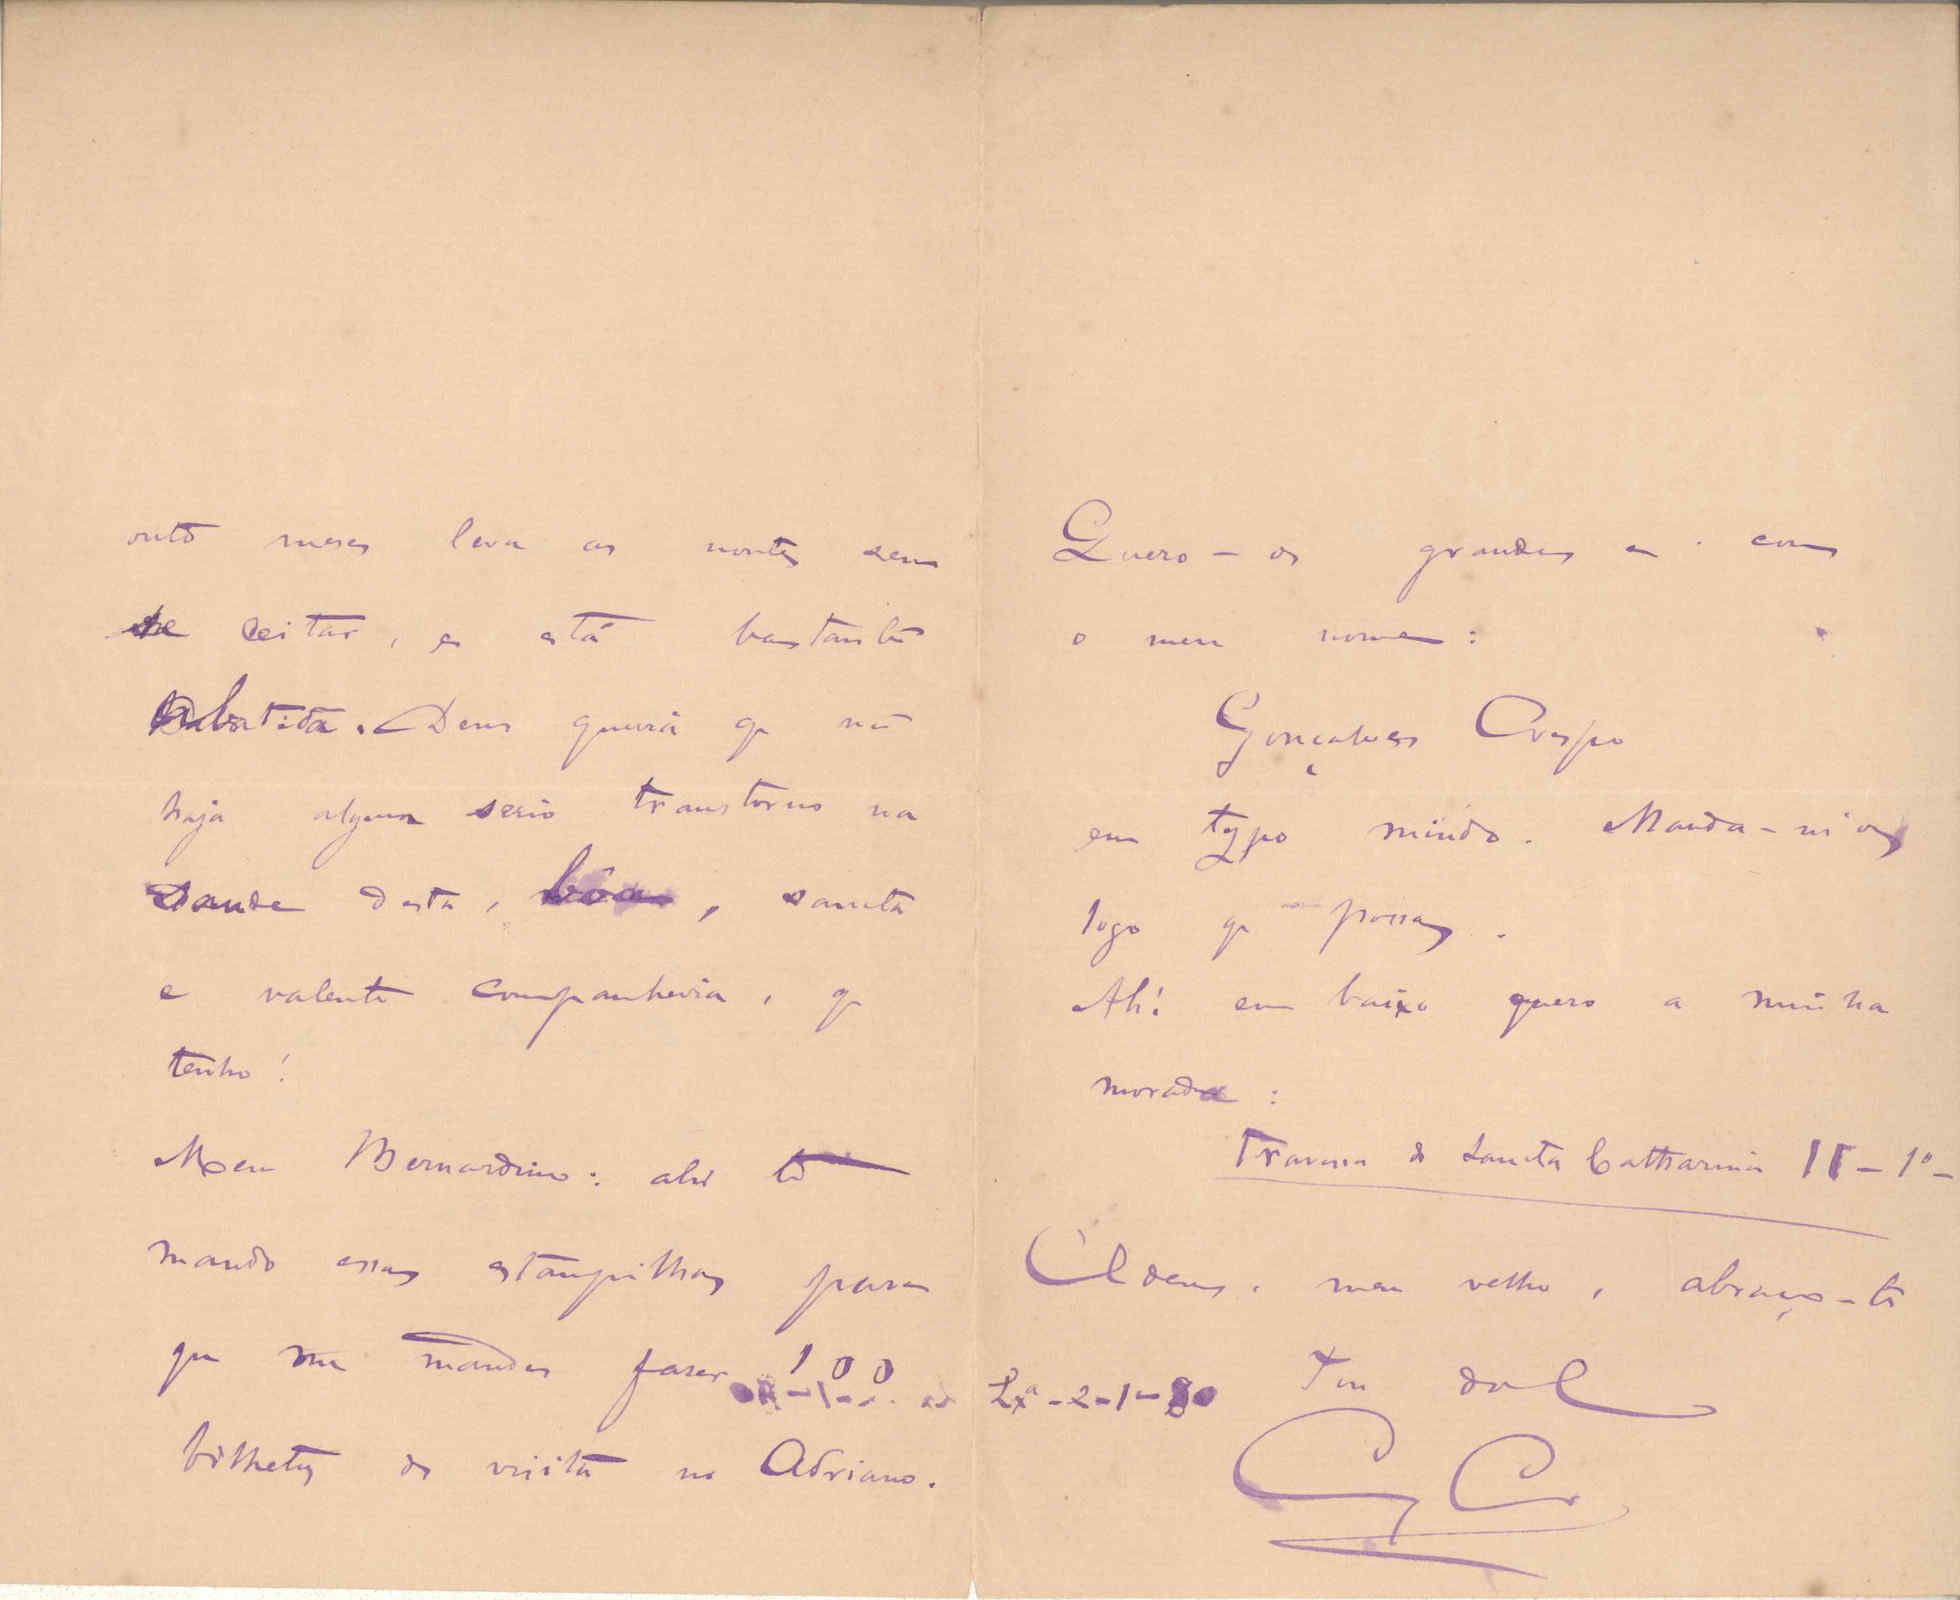 outo meses leva as noutes sem
se deitar, e está bastante
abatida. Deus queira q não
haja algum serio transtorno na
saude desta, bôa, sancta
e valente companheira, q
tenho!
Meu Bernardino: ahi te
mando essas estampilhas para
que me mandes fazer 100
bilhetes de visita no Adriano.
Quero-os grandes e com
o meu nome:
Gonçalves Crespo
em typo miudo. Manda-m'os
logo q possas.
Ah! em baixo quero a minha
morada:
Travessa de Sancta Catharina 11-1º-
Adeus, meu velho, abraço-te
Teu do C
Lxª-2-1-80
G Cr